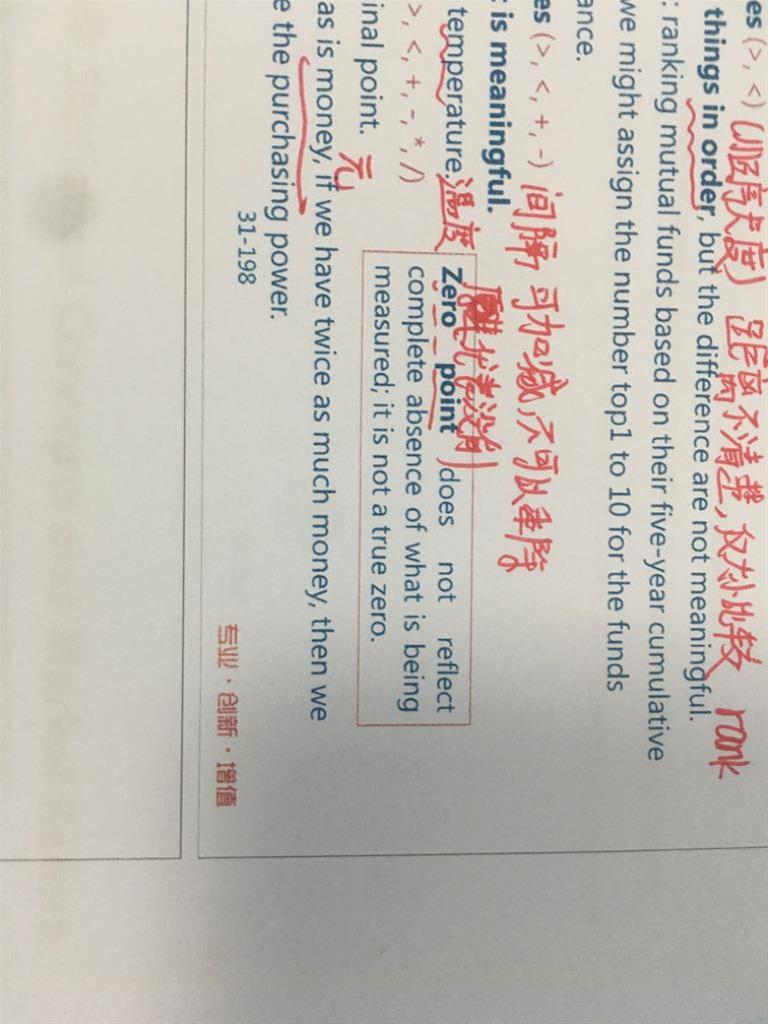 es (>, <) (顺序尺度) 距离不清楚,仅大小比较 rank
things in order, but the difference are not meaningful.
: ranking mutual funds based on their five-year cumulative
we might assign the number top1 to 10 for the funds
ance.
es (>, <, +, -) 间隔 可加减,不可以乘除
: is meaningful.
temperature 温度
代表没有)
Zero point does not reflect
complete absence of what is being
measured; it is not a true zero.
>, <, +, -, *, /)
inal point. 元
as is money, if we have twice as much money, then we
e the purchasing power.
31-198
专业·创新·增值